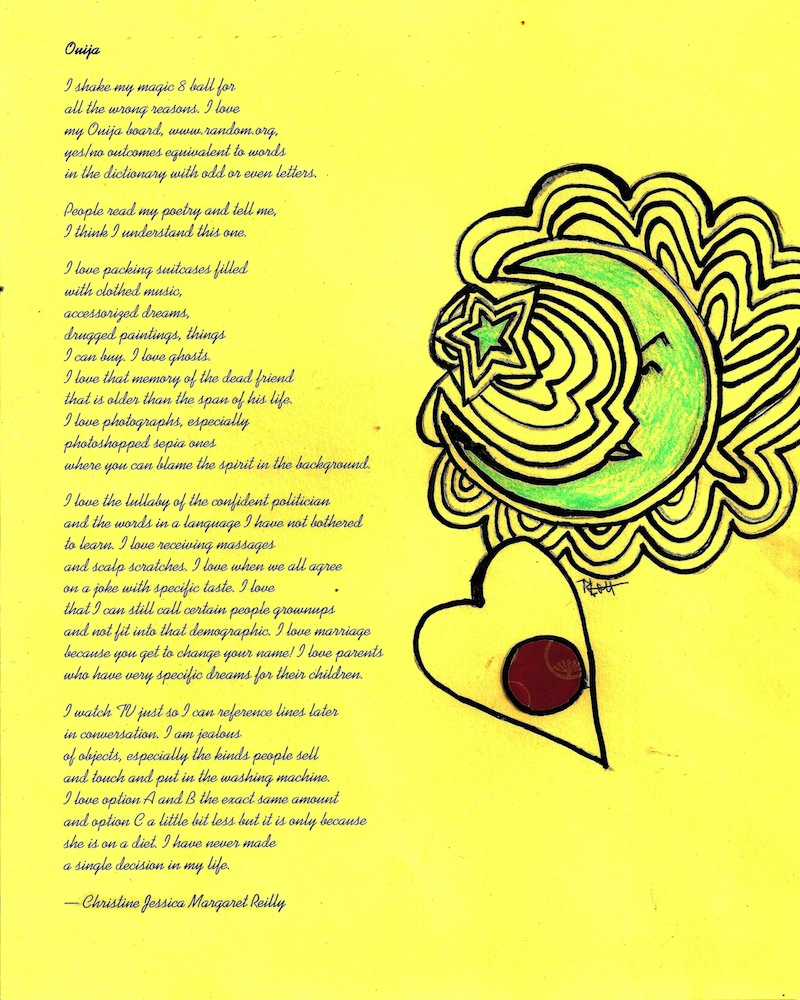 Ouija
I shake my magic 8 ball for
all the wrong reasons. I love
my Ouija board, www.random.org,
yes/no outcomes equivalent to words
in the dictionary with odd or even letters.
People read my poetry and tell me,
I think I understand this one.
I love packing suitcases filled
with clothed music,
accessorized dreams,
drugged paintings, things
I can buy. I love ghosts.
I love that memory of the dead friend
that is older than the span of his life.
I love photographs, especially
photoshopped sepia ones
where you can blame the spirit in the background.
I love the lullaby of the confident politician
and the words in a language I have not bothered
to learn. I love receiving massages
and scalp scratches. I love when we all agree
on a joke with specific taste. I love
that I can still call certain people grownups
and not fit into that demographic. I love marriage
because you get to change your name! I love parents
who have very specific dreams for their children.
I watch TV just so I can reference lines later
in conversation. I am jealous
of objects, especially the kinds people sell
and touch and put in the washing machine.
I love option A and B the exact same amount
and option C a little bit less but it is only because
she is on a diet. I have never made
a single decision in my life.
— Christine Jessica Margaret Reilly